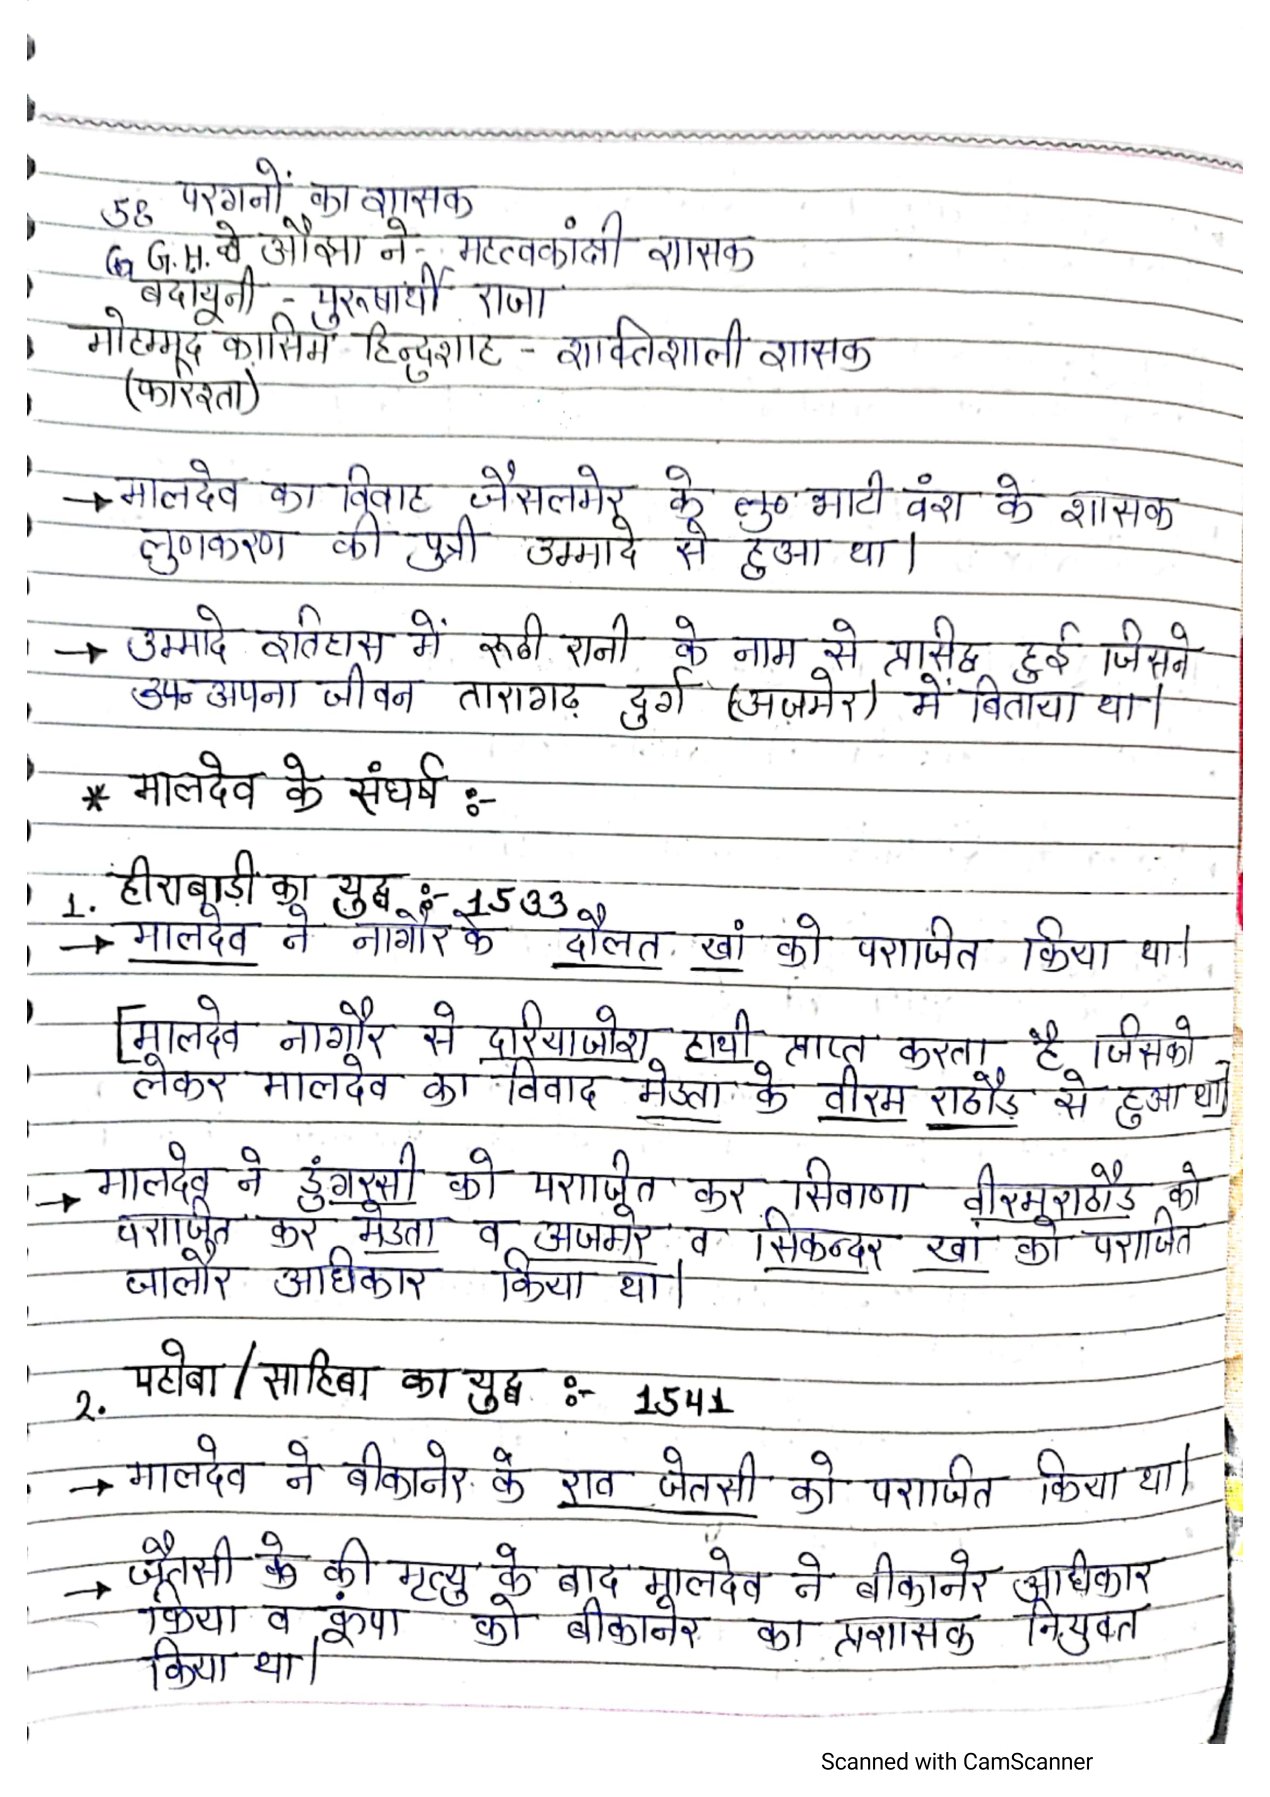 58 परगनों का शासक
G.H. औझा ने - महत्वकांक्षी शासक
बदायूनी - पुरूषार्थी राजा
मोहम्मूद कासिम हिन्दुशाह - शक्तिशाली शासक
(फरिश्ता)
→ मालदेव का विवाह जैसलमेर के भाटी वंश के शासक
लुणकरण की पुत्री उम्मादे से हुआ था।
→ उम्मादे इतिहास में रूठी रानी के नाम से प्रसिद्ध हुई जिसने
अपना जीवन तारागढ़ दुर्ग (अजमेर) में बिताया था।
* मालदेव के संघर्ष :-
1. हीराबाड़ी का युद्ध :- 1533
→ मालदेव ने नागौर के दौलत खां को पराजित किया था।
[मालदेव नागौर से दरियाजोश हाथी प्राप्त करता है जिसको
लेकर मालदेव का विवाद मेड़ता के वीरम राठौड़ से हुआ था]
→ मालदेव ने डुंगरसी को पराजित कर सिवाणा वीरमराठौड को
पराजित कर मेडता व अजमेर व सिकन्दर खां को पराजित
जालौर अधिकार किया था।
2. पहोबा / साहिबा का युद्ध :- 1541
→ मालदेव ने बीकानेर के राव जेतसी को पराजित किया था।
→ जैतसी की मृत्यु के बाद मालदेव ने बीकानेर अधिकार
किया व कूंपा को बीकानेर का प्रशासक नियुक्त
किया था।
Scanned with CamScanner